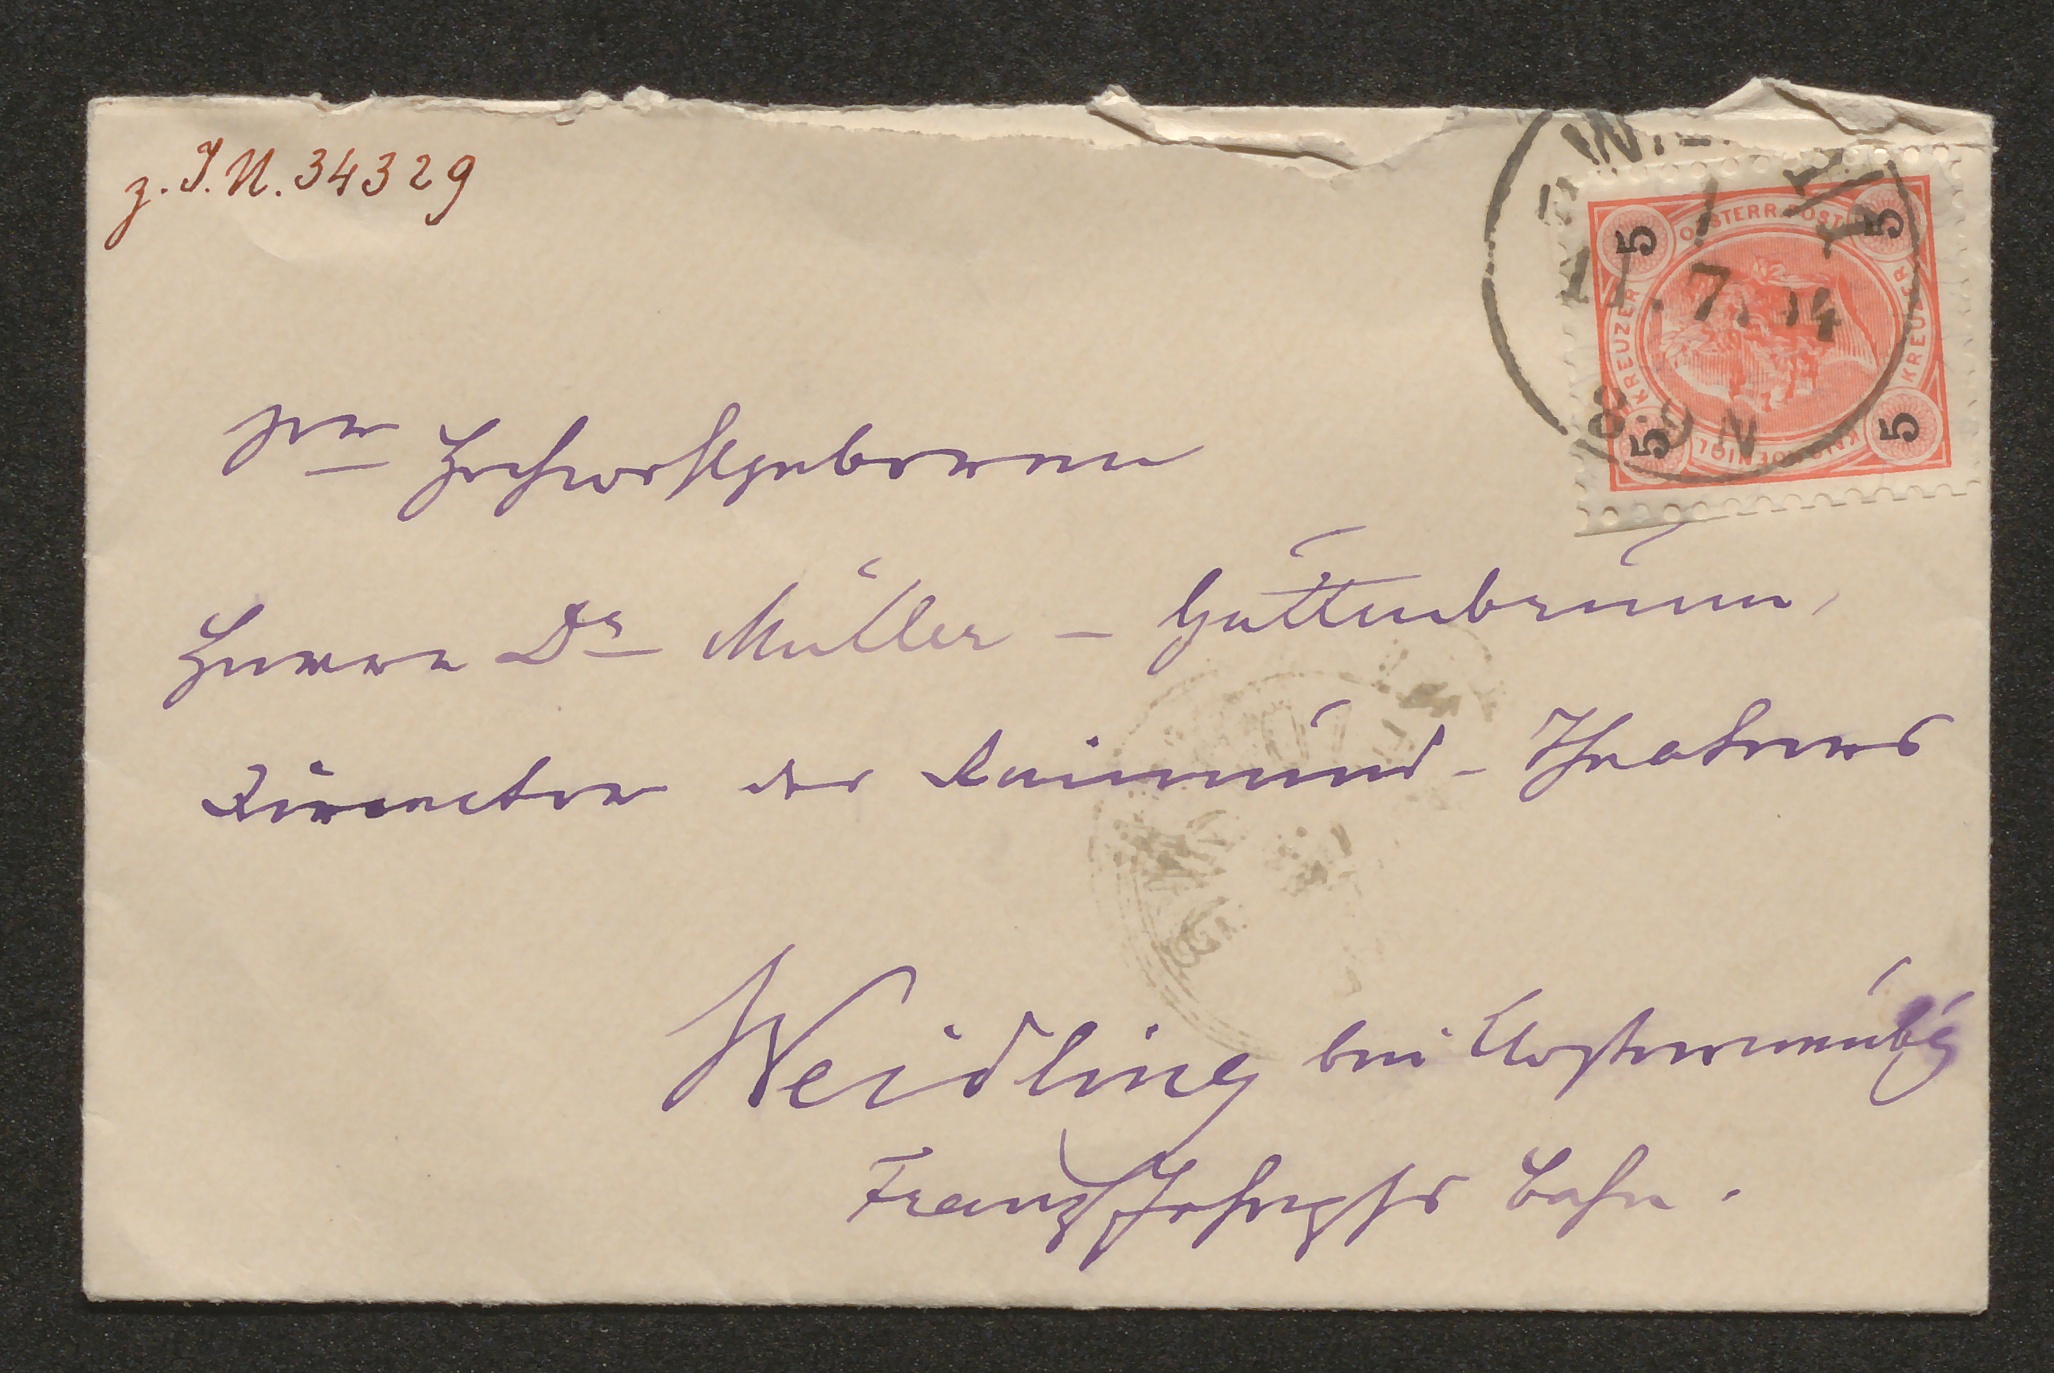 z. I.N. 34329
WIEN
7. 94
8-9N
OESTERR. POST
KREUZER
KREUZER
5 5 5 5
Sr Hochwohlgeboren
Herrn Dr Müller - Guttenbrunn,
Director des Raimund - Theaters
Weidling bei Klosterneubg
Franz Josephs Bahn.